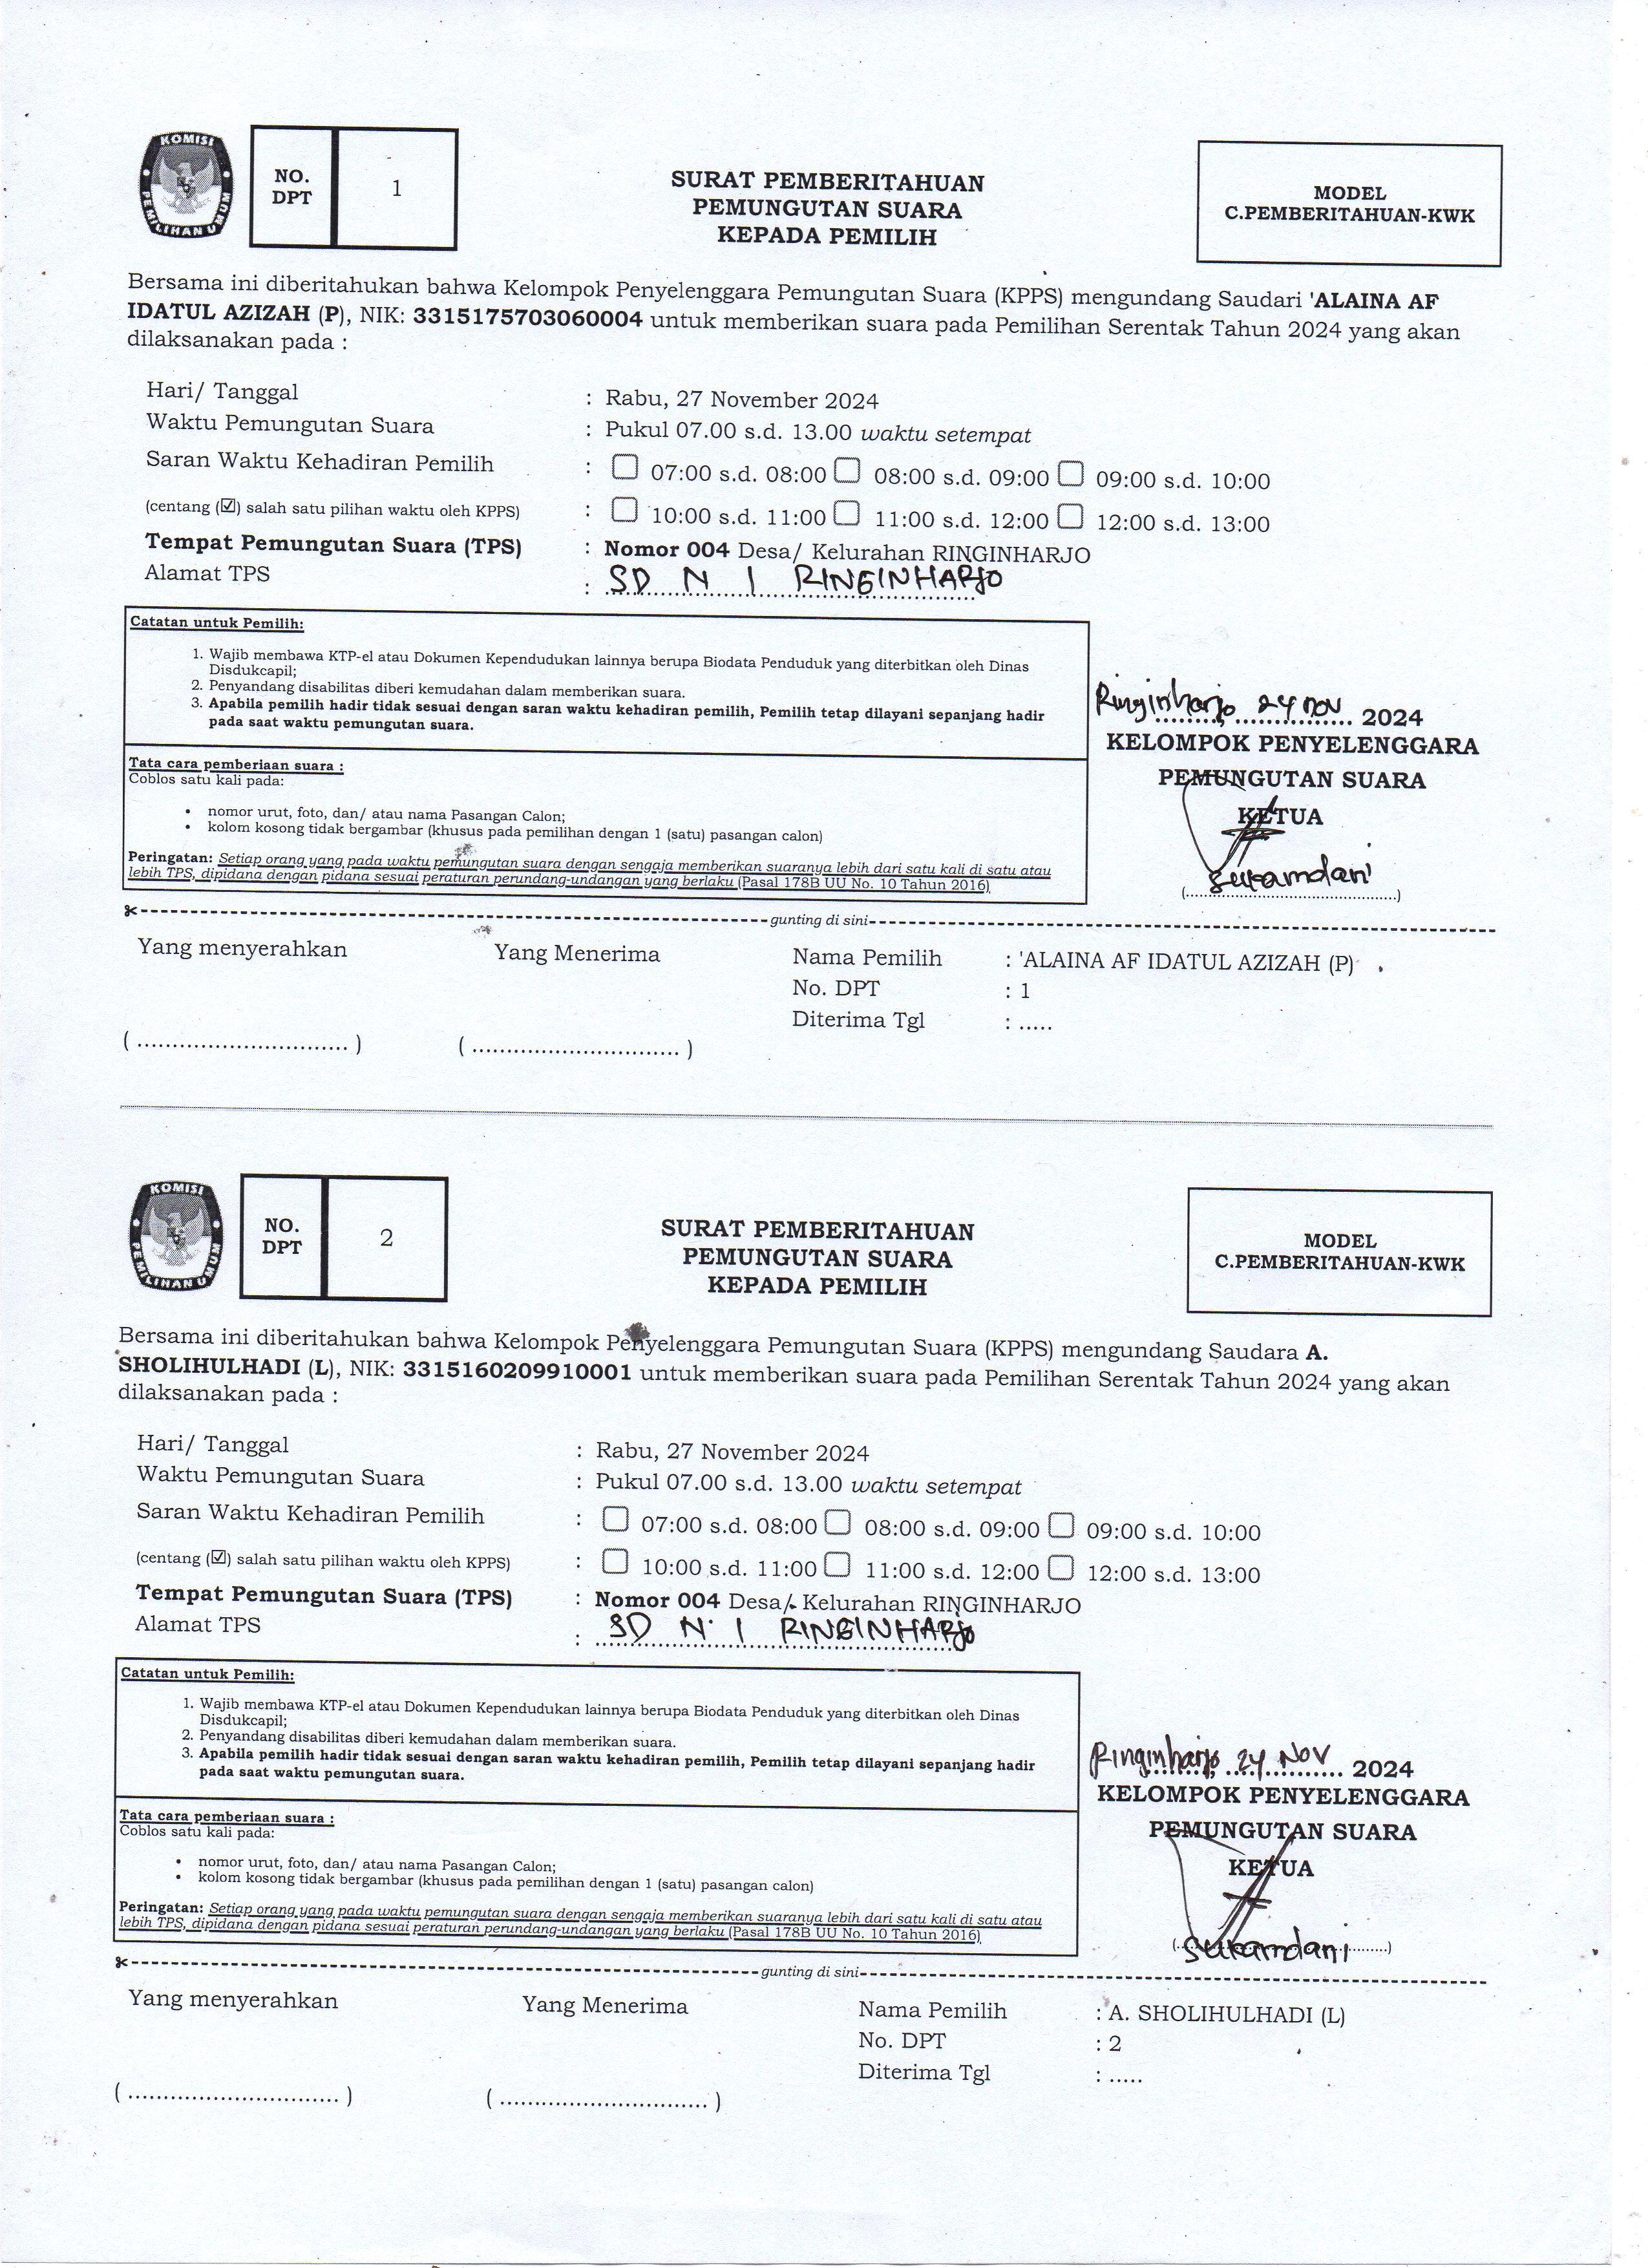 KOMISI
PEMILIHAN UMUM
NO.
DPT
1
SURAT PEMBERITAHUAN
PEMUNGUTAN SUARA
KEPADA PEMILIH
MODEL
C.PEMBERITAHUAN-KWK
Bersama ini diberitahukan bahwa Kelompok Penyelenggara Pemungutan Suara (KPPS) mengundang Saudari 'ALAINA AF
IDATUL AZIZAH (P), NIK: 3315175703060004 untuk memberikan suara pada Pemilihan Serentak Tahun 2024 yang akan
dilaksanakan pada :
Hari/ Tanggal : Rabu, 27 November 2024
Waktu Pemungutan Suara : Pukul 07.00 s.d. 13.00 waktu setempat
Saran Waktu Kehadiran Pemilih : ☐ 07:00 s.d. 08:00 ☐ 08:00 s.d. 09:00 ☐ 09:00 s.d. 10:00
(centang (☑) salah satu pilihan waktu oleh KPPS) : ☐ 10:00 s.d. 11:00 ☐ 11:00 s.d. 12:00 ☐ 12:00 s.d. 13:00
Tempat Pemungutan Suara (TPS) : Nomor 004 Desa/ Kelurahan RINGINHARJO
Alamat TPS : SD N 1 RINGINHARJO
Catatan untuk Pemilih:
1. Wajib membawa KTP-el atau Dokumen Kependudukan lainnya berupa Biodata Penduduk yang diterbitkan oleh Dinas
Disdukcapil;
2. Penyandang disabilitas diberi kemudahan dalam memberikan suara.
3. Apabila pemilih hadir tidak sesuai dengan saran waktu kehadiran pemilih, Pemilih tetap dilayani sepanjang hadir
pada saat waktu pemungutan suara.
Tata cara pemberiaan suara :
Coblos satu kali pada:
• nomor urut, foto, dan/ atau nama Pasangan Calon;
• kolom kosong tidak bergambar (khusus pada pemilihan dengan 1 (satu) pasangan calon)
Peringatan: Setiap orang yang pada waktu pemungutan suara dengan sengaja memberikan suaranya lebih dari satu kali di satu atau
lebih TPS, dipidana dengan pidana sesuai peraturan perundang-undangan yang berlaku (Pasal 178B UU No. 10 Tahun 2016)
Ringinharjo, 24 nov 2024
KELOMPOK PENYELENGGARA
PEMUNGUTAN SUARA
KETUA
(Sukamdani)
gunting di sini
Yang menyerahkan Yang Menerima Nama Pemilih : 'ALAINA AF IDATUL AZIZAH (P)
No. DPT : 1
Diterima Tgl : .....
( .............................. ) ( .............................. )
KOMISI
PEMILIHAN UMUM
NO.
DPT
2
SURAT PEMBERITAHUAN
PEMUNGUTAN SUARA
KEPADA PEMILIH
MODEL
C.PEMBERITAHUAN-KWK
Bersama ini diberitahukan bahwa Kelompok Penyelenggara Pemungutan Suara (KPPS) mengundang Saudara A.
SHOLIHULHADI (L), NIK: 3315160209910001 untuk memberikan suara pada Pemilihan Serentak Tahun 2024 yang akan
dilaksanakan pada :
Hari/ Tanggal : Rabu, 27 November 2024
Waktu Pemungutan Suara : Pukul 07.00 s.d. 13.00 waktu setempat
Saran Waktu Kehadiran Pemilih : ☐ 07:00 s.d. 08:00 ☐ 08:00 s.d. 09:00 ☐ 09:00 s.d. 10:00
(centang (☑) salah satu pilihan waktu oleh KPPS) : ☐ 10:00 s.d. 11:00 ☐ 11:00 s.d. 12:00 ☐ 12:00 s.d. 13:00
Tempat Pemungutan Suara (TPS) : Nomor 004 Desa/ Kelurahan RINGINHARJO
Alamat TPS : SD N 1 RINGINHARJO
Catatan untuk Pemilih:
1. Wajib membawa KTP-el atau Dokumen Kependudukan lainnya berupa Biodata Penduduk yang diterbitkan oleh Dinas
Disdukcapil;
2. Penyandang disabilitas diberi kemudahan dalam memberikan suara.
3. Apabila pemilih hadir tidak sesuai dengan saran waktu kehadiran pemilih, Pemilih tetap dilayani sepanjang hadir
pada saat waktu pemungutan suara.
Tata cara pemberiaan suara :
Coblos satu kali pada:
• nomor urut, foto, dan/ atau nama Pasangan Calon;
• kolom kosong tidak bergambar (khusus pada pemilihan dengan 1 (satu) pasangan calon)
Peringatan: Setiap orang yang pada waktu pemungutan suara dengan sengaja memberikan suaranya lebih dari satu kali di satu atau
lebih TPS, dipidana dengan pidana sesuai peraturan perundang-undangan yang berlaku (Pasal 178B UU No. 10 Tahun 2016)
Ringinharjo, 24 Nov 2024
KELOMPOK PENYELENGGARA
PEMUNGUTAN SUARA
KETUA
(Sukamdani)
gunting di sini
Yang menyerahkan Yang Menerima Nama Pemilih : A. SHOLIHULHADI (L)
No. DPT : 2
Diterima Tgl : .....
( .............................. ) ( .............................. )